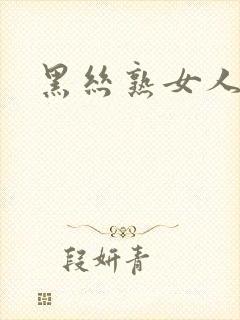 黑丝熟女人
段妍青